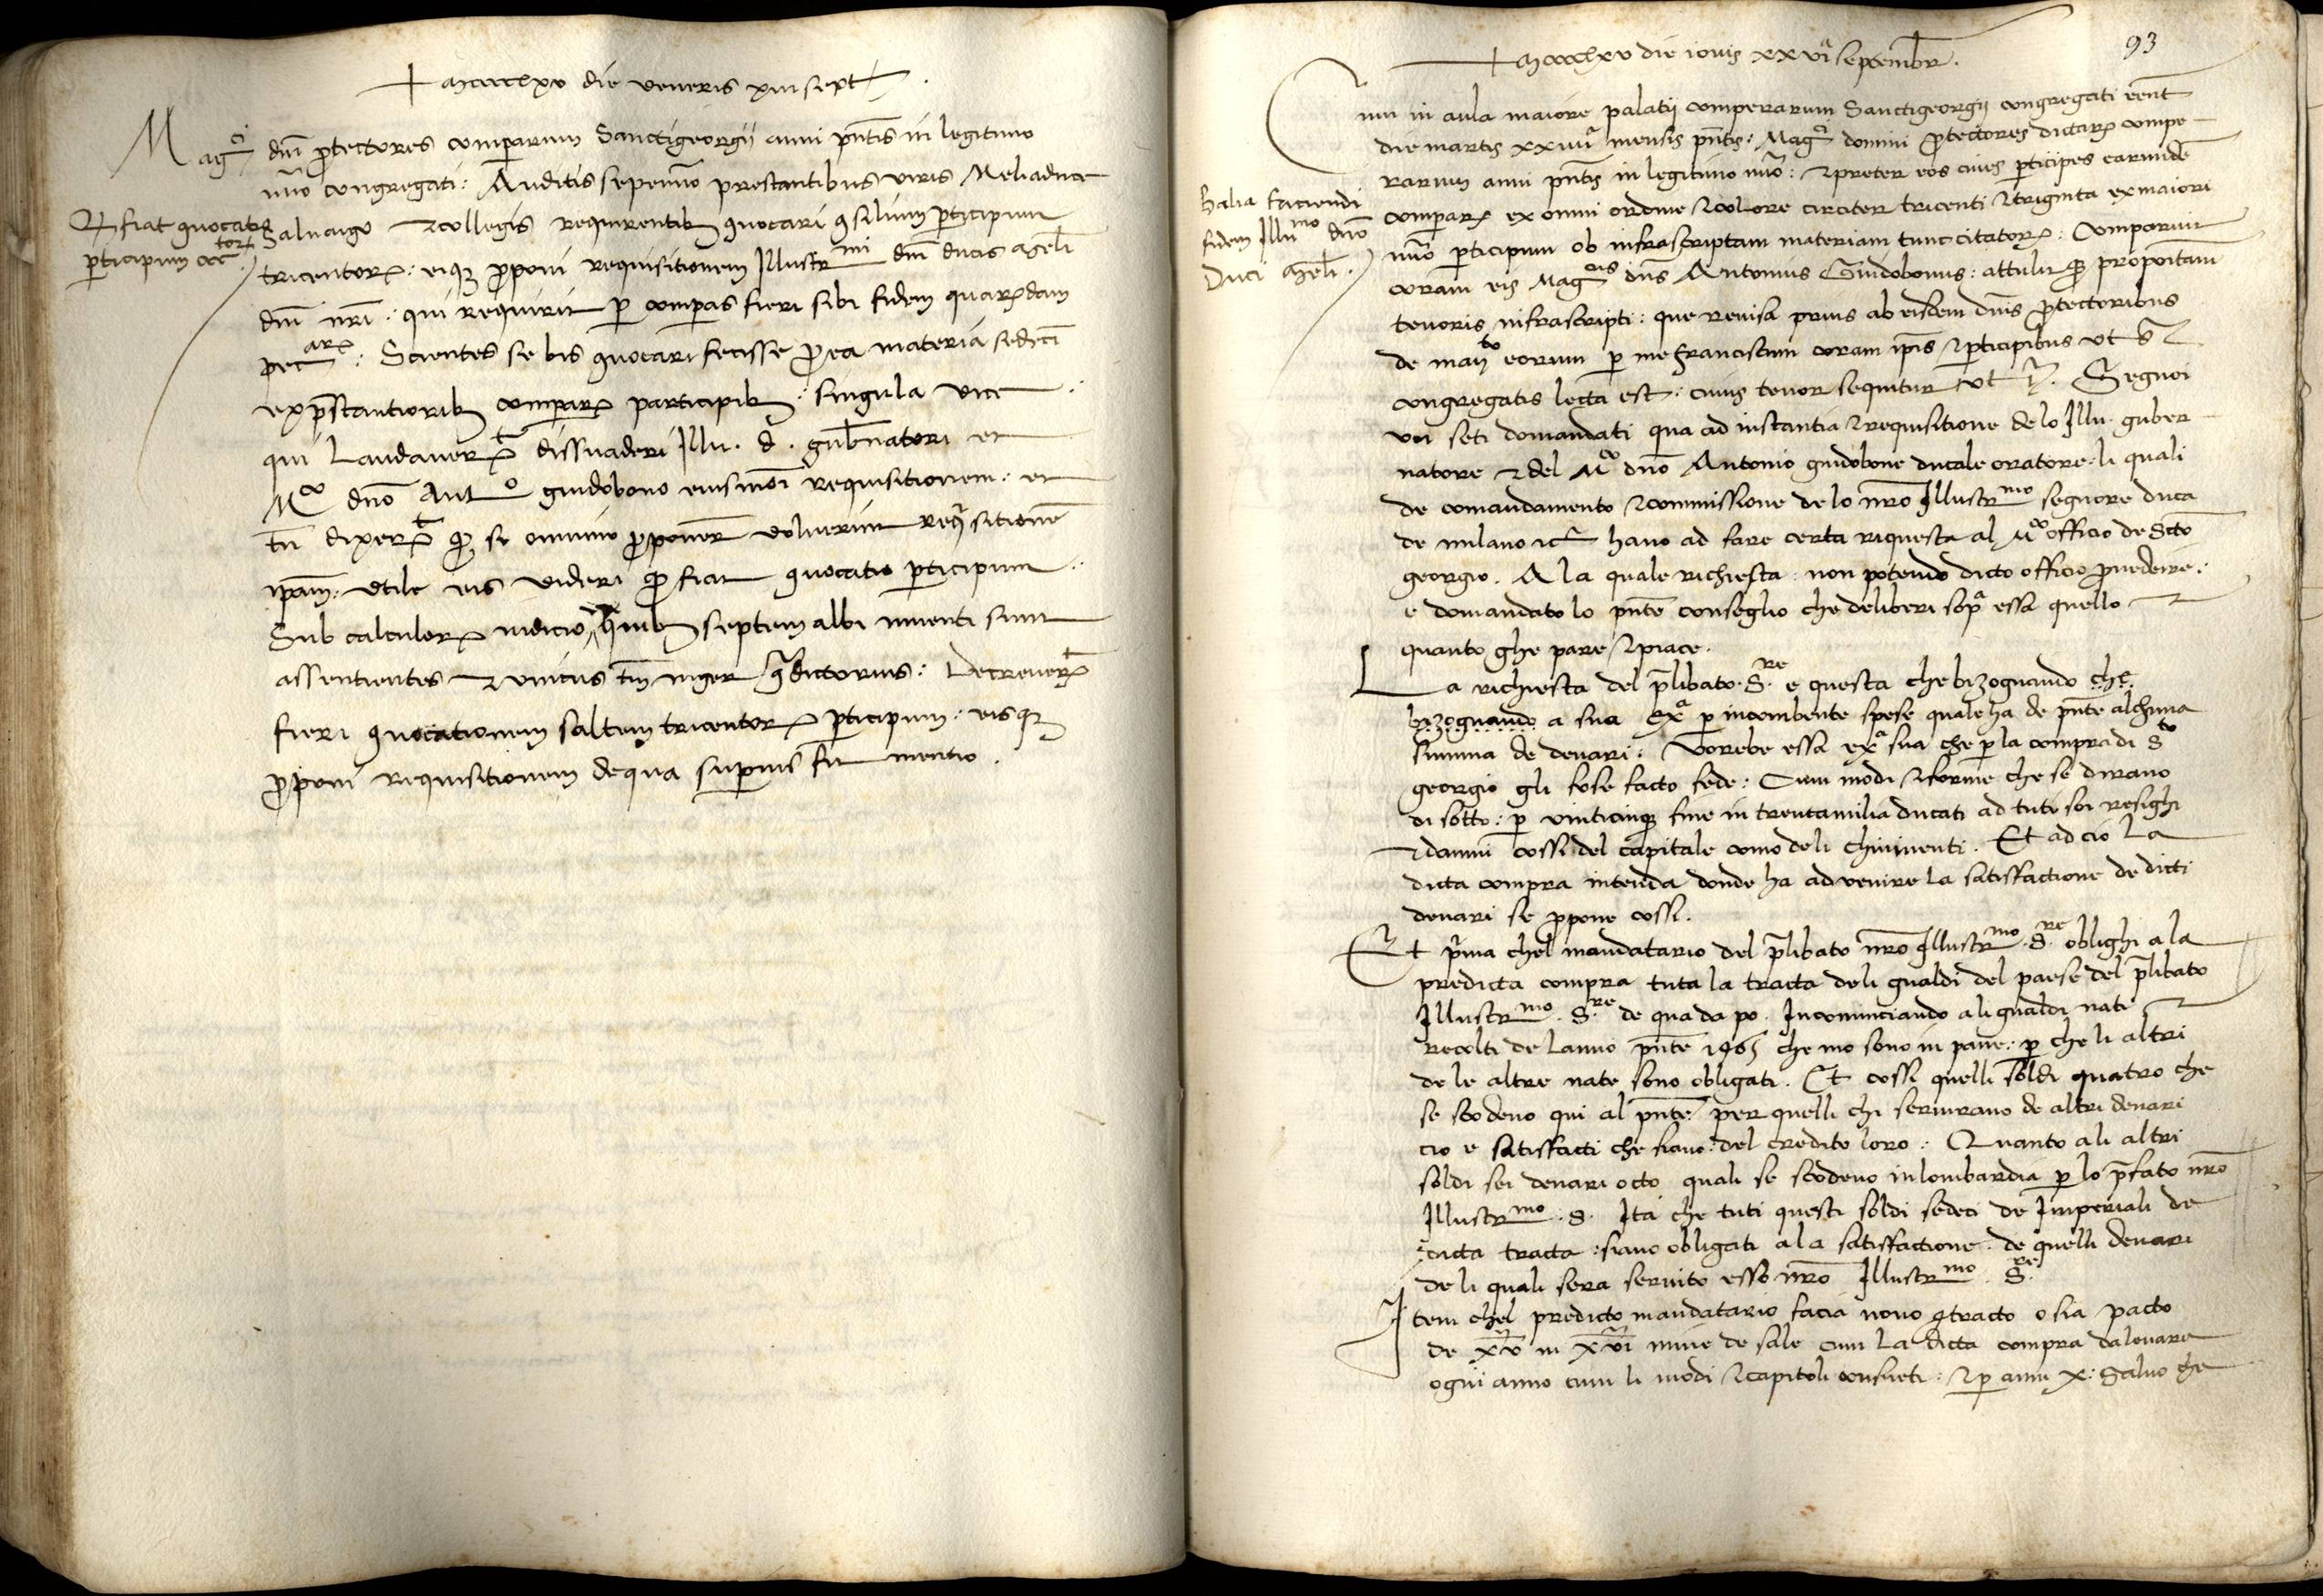 + Mcccclxv die veneris xiii sept
Magci dni protectores comperarum Sanctigeorgii anni pntis in legitimo
nuo congregati: Auditis sepenuo prestantibus viris Meliaduce
Salvaigo et collegis requirentib quocari qsilium pticipum
tricentor: eisq proponi requisitionem Illustrmi dni ducis Mli
dni nri: qui requirit p comperas fieri sibi fidem quarumdam
pecar: Scientes se bis quocari fecisse pro ea materia sedecim
ex pstantiorib comperar participib: singula vice
qui laudavert dissuaderi Illu. d. gubnatori et
Mco dno Anto guidobono eiusmoi requisitionem: et
tn dixert q si omnino proponer voluerint requisitione
ipam: utile eis videri q fiat quocatio pticipum
Sub calculor iudicio quib septem albi inventi sunt
assentientes et unicus tm niger qdictorius: Decrevert
fieri quocationem saltem tricentor pticipum: eisq
proponi requisitionem de qua superius fit mentio.
Q fiat quocatio
pticipum ccctor
93
+ Mcccclxv die iovis xxvia septembr.
Cum in aula maiore palatii comperarum Sanctigeorgii congregati eent
die martis xxiiiia mensis pntis: Magci domini protectores dictar compe
rarum anni pntis in legitimo nuo: et preter eos cives pticipes earumde
compar ex omni ordine et colore circiter tricenti et triginta ex maiori
nuo pticipum ob infrascriptam materiam tunc citator: Comparuit
coram eis Magcus dns Antonius Guidobonus: attulit q propoitam
tenoris infrascripti: que revisa prius ab eisdem dnis protectoribus
de manto eorum p me Franciscum coram ipis et pticipibus ut s
congregatis lecta est: cuius tenor sequitur ut i. Segnoi
voi seti domandati qua ad instantia et requisitione de lo Illu. guber
natore et del Mco dno Antonio guidobono ducale oratore: li quali
de comandamento et commissione de lo nro Illustrmo segnore duca
de milano etc hano ad fare certa riquesta al Mco officio de Scto
georgio. A la quale richiesta non potendo dicto officio provedeire:
e domandato lo pnte conseglio che deliberi sopa essa quello
quanto ghe pare et piace.
La richiesta del plibato Sre e questa che bizognando che
bizognando a sua Exa p incombente spese quale ha de pnte alchuna
summa de denari: Vorebe essa exa sua che p la compra di Sto
georgio gli fose facto fede: Cum modi et forme che se dirano
di sotto: p vinticinq fine in trentamilia ducati ad tuti soi resighi
et danni cossi del capitale como deli chiuimenti. Et ad cio la
dicta compra intenda donde ha ad venire la satisfactione de dicti
denari se propone cossi.
Et pima chel mandatario del plibato nro Illustrmo Sre oblighi a la
predicta compra tuta la tracta deli gualdi del paese del plibato
Illustrmo Sre de qua da po. Incominciando ali gualdi nati
recolti de lanno pnte 1465 che mo sono in pane: p che li altri
de le altre nate sono obligati. Et cossi quelli soldi quatro che
se scodeno qui al pnte per quelli chi servirano de altri denari
cio e satisfacti che siano del credito loro: Quanto ali altri
soldi sei denari octo quali se scodeno in lombardia p lo pfato nro
Illustrmo S. Ita che tuti questi soldi sedeci de Imperiali de
dicta tracta siano obligati a la satisfactione de quelli denari
de li quali sera servito esso nro Illustrmo Sre
Item chel predicto mandatario facia novo qtracto o sia pacto
de xv in xvi mine de sale cum la dicta compra da levare
ogni anno cum li modi et capitoli consueti: et p anni x: Salvo che
Balia faciendi
fidem Illumo dno
Duci Mli.